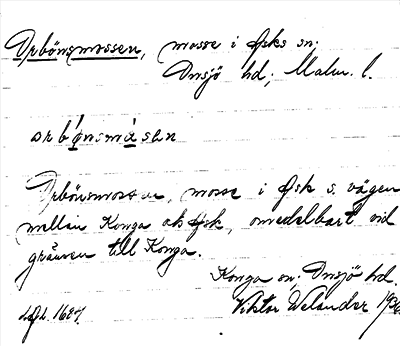 Orbönsmossen, mosse i Ask s sn;
Onsjö hd; Malm. l.
orbönsmåsen
Orbönsmossen, mosse i Ask s. vägen
mellan Konga och Ask, omedelbart vid
gränsen till Konga.
Konga sn, Onsjö hd.
Viktor Welander 1936